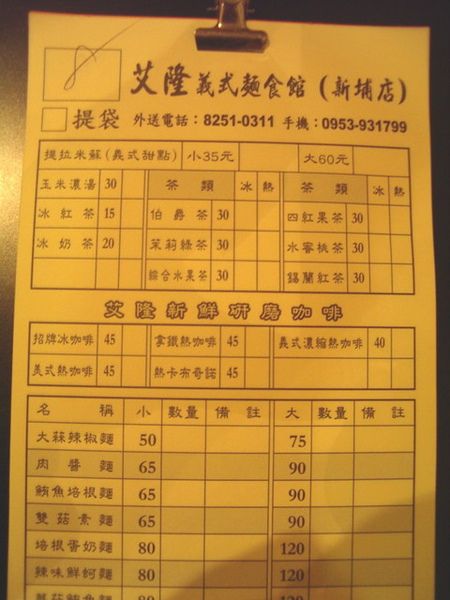 艾隆義式麵食館(新埔店)
提袋 外送電話:8251-0311 手機:0953-931799
提拉米蘇(義式甜點) 小35元 大60元
玉米濃湯 30 茶類 冰 熱 茶類 冰 熱
冰紅茶 15 伯爵茶 30 四紅果茶 30
冰奶茶 20 茉莉綠茶 30 水蜜桃茶 30
綜合水果茶 30 錫蘭紅茶 30
艾隆新鮮研磨咖啡
招牌冰咖啡 45 拿鐵熱咖啡 45 義式濃縮熱咖啡 40
美式熱咖啡 45 熱卡布奇諾 45
名稱 小 數量 備註 大 數量 備註
大蒜辣椒麵 50 75
肉醬麵 65 90
鮪魚培根麵 65 90
雙菇素麵 65 90
培根蛋奶麵 80 120
辣味鮮蚵麵 80 120